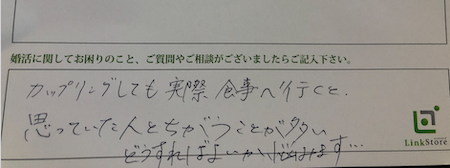 婚活に関してお困りのこと、ご質問やご相談がございましたらご記入下さい。
カップリングしても実際食事へ行くと、
思っていた人とちがうことが多い
どうすればよいか悩みます…
LinkStore